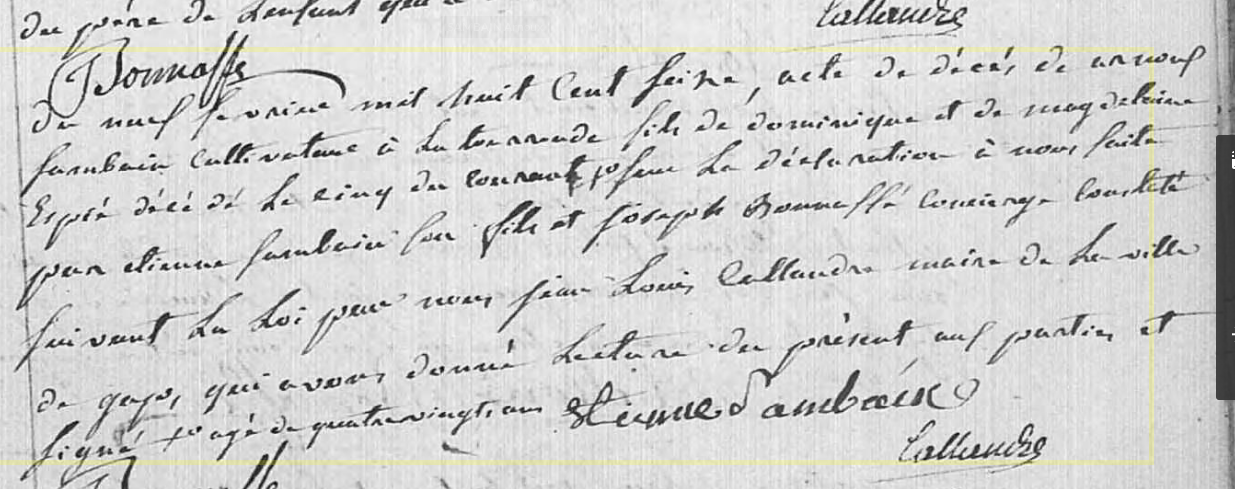 du père de l'enfant
Callandre
Bonnaffé
du neuf fevrier mil huit Cent seize, acte de décés de arnoux
Sambain Cultivateur à La tourronde fils de dominique et de magdeleine
Espié décédé Le cinq du courant sur La déclaration à nous faite
par etienne Sambain son fils et joseph Bonnaffé concierge constaté
suivant La Loi par nous jean Louis Callandre maire de La ville
de gap, qui avons donné Lecture du présent aux parties et
signé agé de quatrevingts ans Etienne Sambain
Callandre